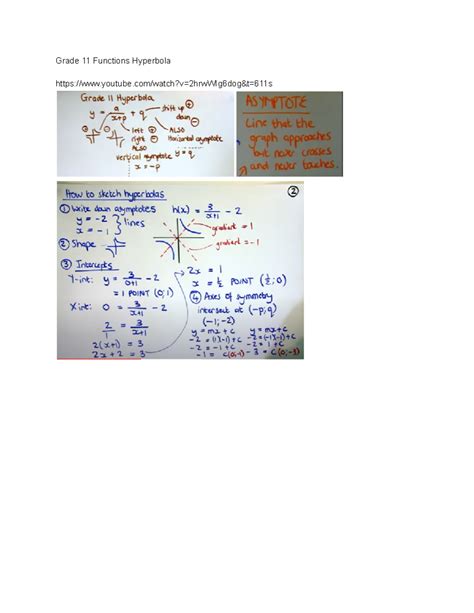 Grade 11 Functions Hyperbola
https://www.youtube.com/watch?v=2hrwWlg6dog&t=611s
Grade 11 Hyperbola
y = a/x+p + q
shift up +
down -
+ -
left +
right -
ALSO
vertical asymptote
x = -p
ALSO
Horizontal asymptote
y = q
ASYMPTOTE
Line that the
graph approaches
but never crosses
and never touches.
How to sketch hyperbolas
2
① Write down asymptotes
y = -2
x = -1
} lines
h(x) = 3/x+1 - 2
gradient = 1
gradient = -1
② Shape
③ Intercepts
Y-int: y = 3/0+1 - 2
= 1 POINT (0; 1)
X int: 0 = 3/x+1 - 2
2/1 = 3/x+1
2(x+1) = 3
2x + 2 = 3
2x = 1
x = ½ POINT (½; 0)
④ Axes of symmetry
intersect at (-p; q)
(-1; -2)
y = mx + c
-2 = (1)(-1) + c
-2 = -1 + c
-1 = c (0; -1)
y = mx + c
-2 = (-1)(-1) + c
-2 = 1 + c
-3 = c (0; -3)